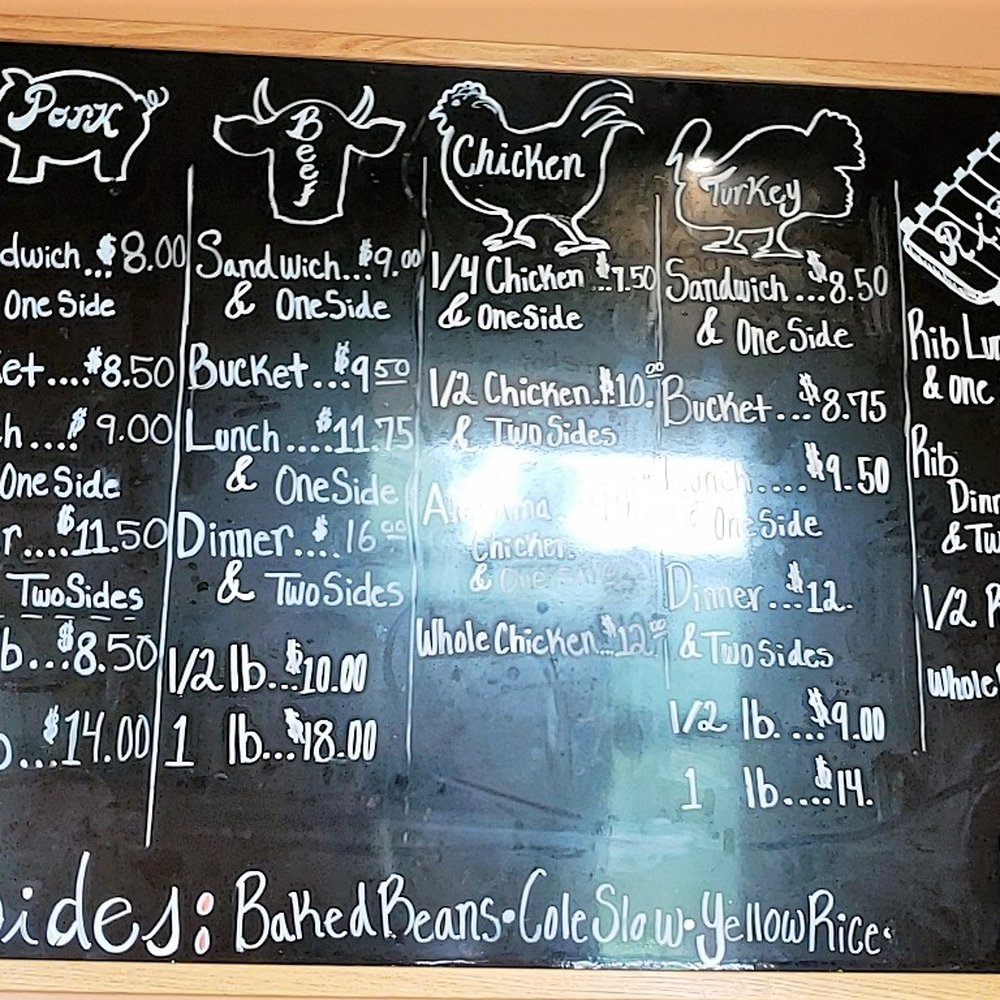 Pork
dwich...$8.00
One Side
et....$8.50
h....$ 9.00
One Side
r....$11.50
Two Sides
b...$8.50
...$14.00
Beef
Sandwich...$9.00
& One Side
Bucket...$9 50
Lunch....$11.75
& One Side
Dinner...$16 00
& Two Sides
1/2 lb...$10.00
1 lb...$18.00
Chicken
1/4 Chicken...$7.50
& One Side
1/2 Chicken..$10.00
& Two Sides
Chicken
& One Side
Whole Chicken...$12.00
Turkey
Sandwich...$8.50
& One Side
Bucket...$8.75
Lunch.....$9.50
& One Side
Dinner...$12.
& Two Sides
1/2 lb. ...$9.00
1 lb....$14.
Rib Lun
& One
Rib
Dinn
& Tw
1/2
Whole
ides: Baked Beans·Cole Slaw·Yellow Rice·